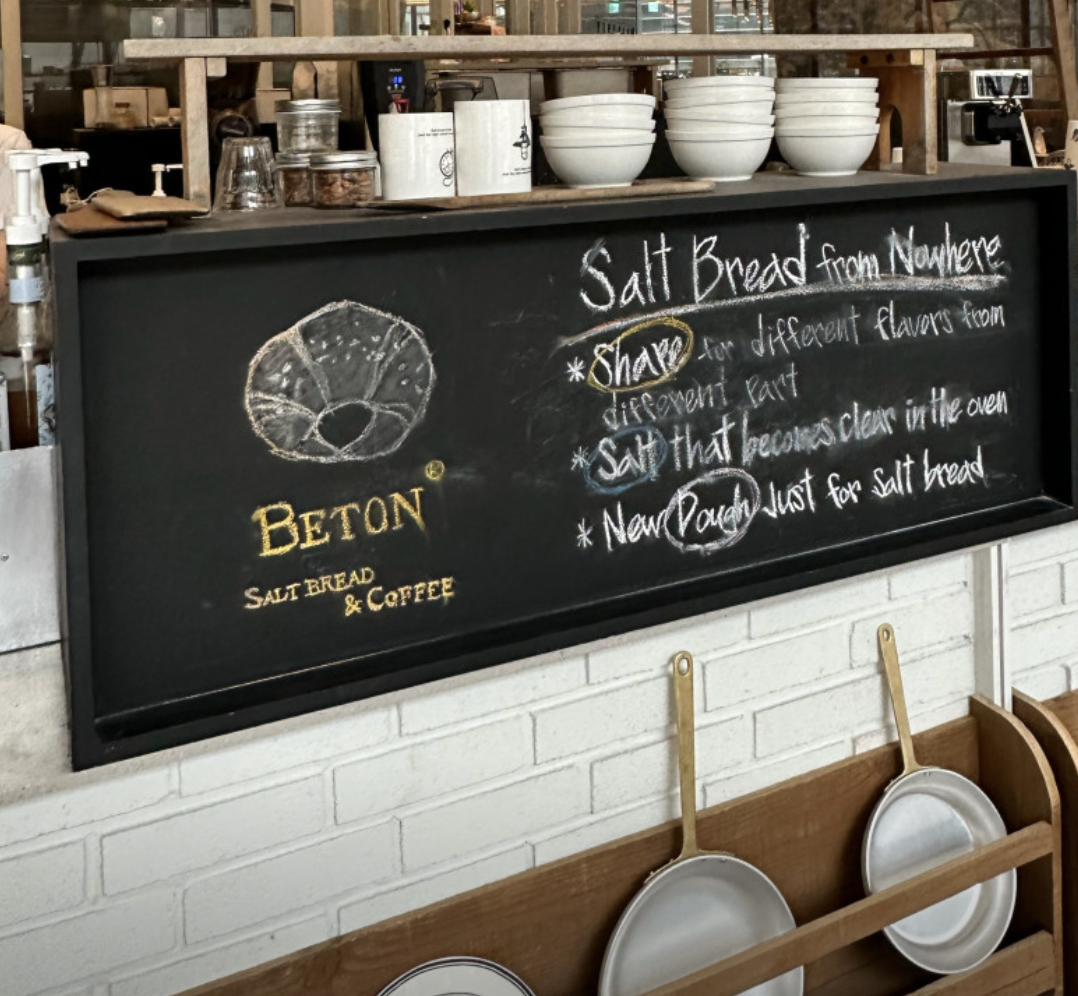 Salt Bread from Nowhere
* Shape for different flavors from
different part
* Salt that becomes clear in the oven
* New Dough Just for salt bread
BETON®
SALT BREAD
& COFFEE